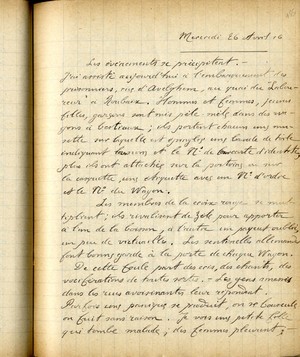 Mercredi 26 Avril 16
Les événements se précipitent.-
J'ai assisté aujourd'hui à l'embarquement des
prisonniers, rue d'Avelghem, au quai du
à Roubaix. Hommes et femmes, jeunes
filles, garçons sont mis pêle-mêle dans des wa-
gons à bestiaux; ils portent chacun une mu-
sette sur laquelle est une bande de toile
indiquant et le N° de d'identité,
plus ils ont attachée sur la poitrine ou sur
la casquette, une étiquette avec un N° d'ordre
et le N° du Wagon.
Les membres de la croix rouge se mul-
tiplient; ils rivalisent de zèle pour apporter
à l'un de la boisson, à l'autre un
un peu de victuailles. Les sentinelles allemandes
font bonne garde à la porte de chaque Wagon.
De cette foule part des cris, des chants, des
vociférations de toutes sortes. Les gens
dans les rues avoisinantes leur répondent.
Parfois une panique se produit, on se bouscule
on fuit sans raison. Je vois une petite fille
qui tombe malade; des femmes pleurent;